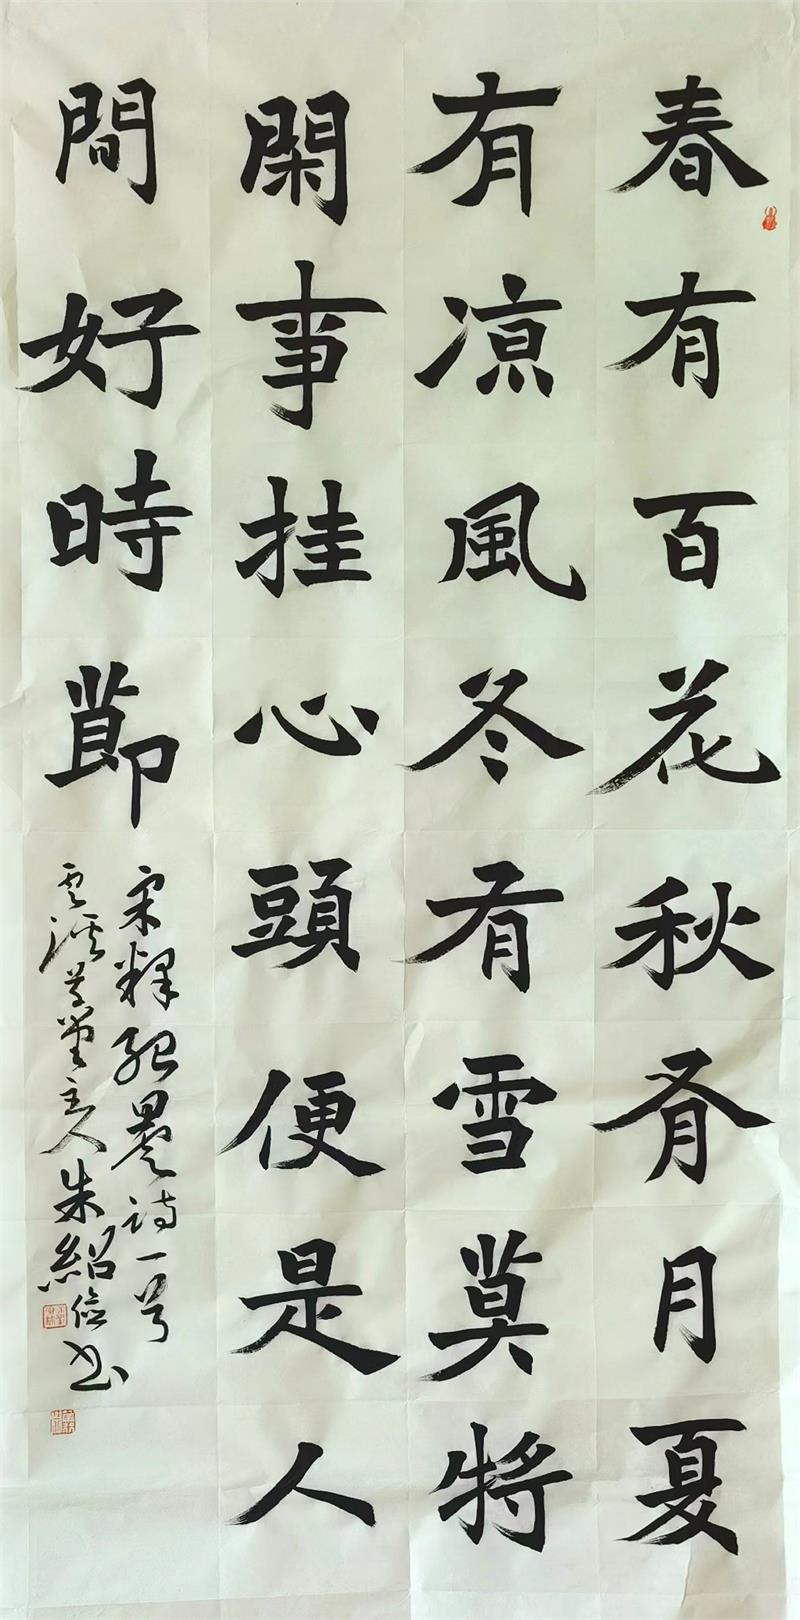 春有百花秋有月夏
有凉風冬有雪莫將
閑事挂心頭便是人
間好時節
宋釋紹曇詩一首
雲溪草堂主人朱紹俭书